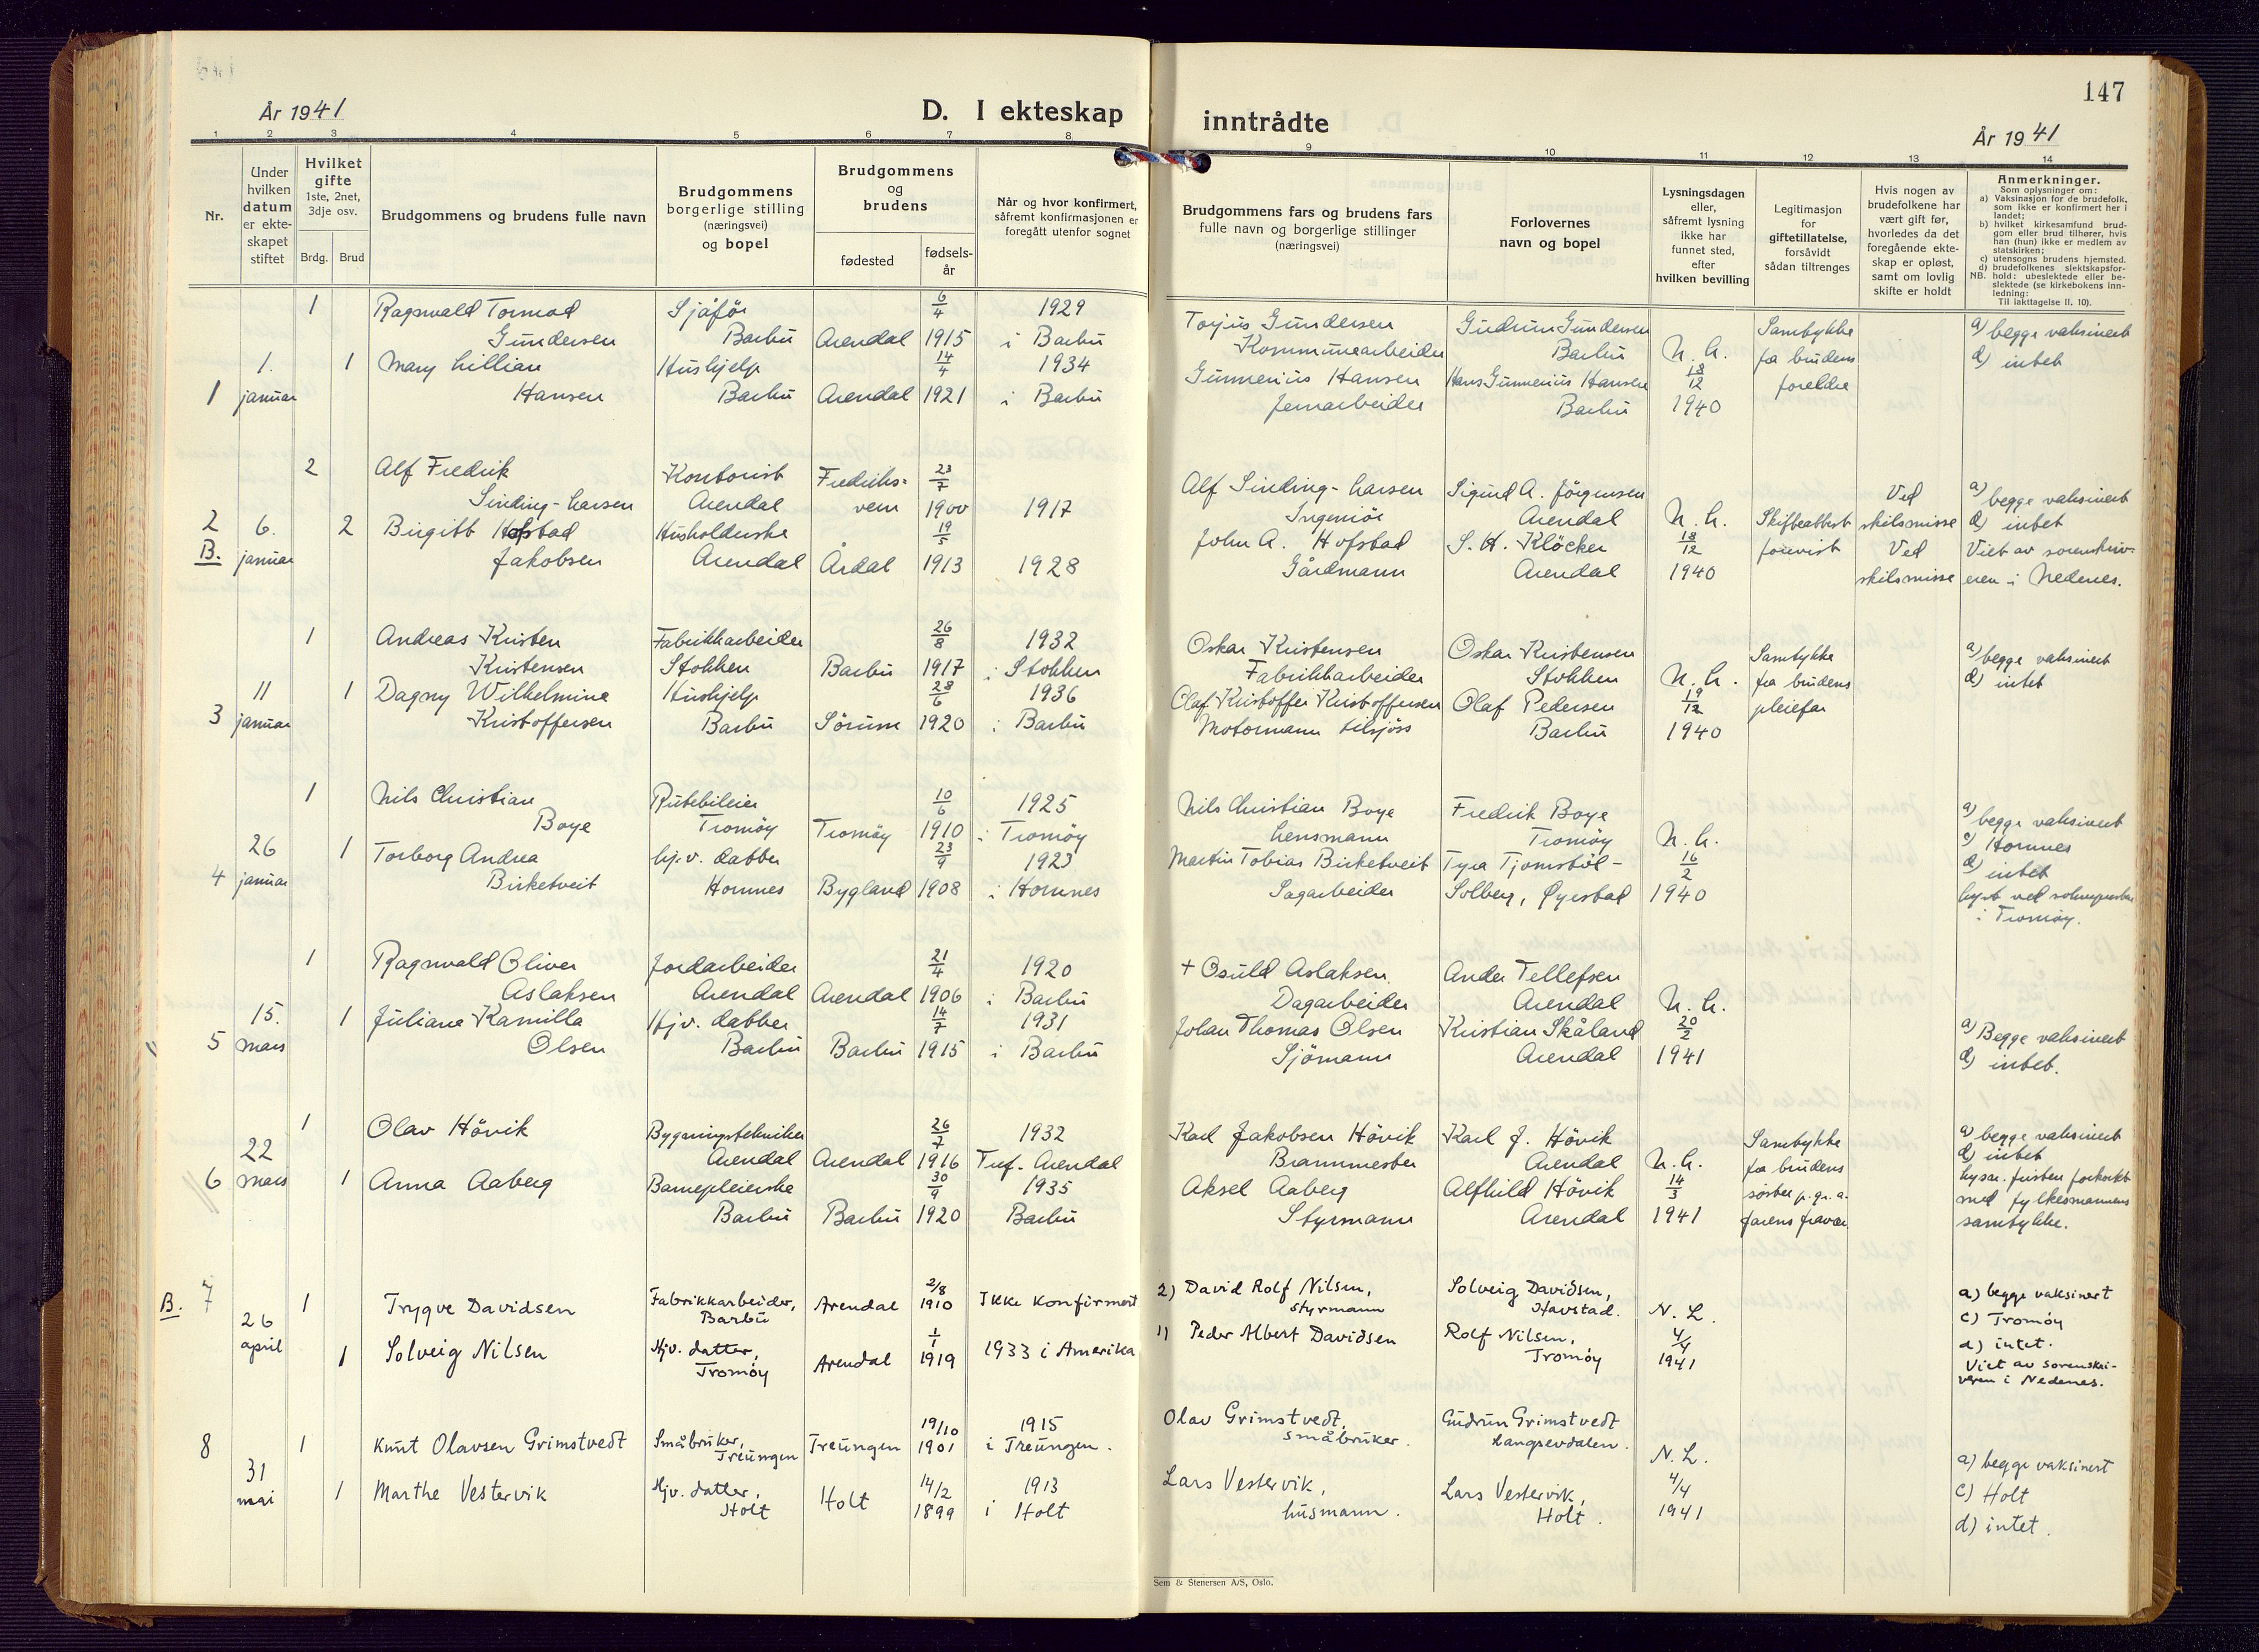 147
År 1941
D. I ekteskap
inntrådte
År 1941
1 2 3 4 5 6 7 8 9 10 11 12 13 14
Nr.
Under
hvilken
datum
er ekte-
skapet
stiftet
Hvilket
gifte
1ste, 2net,
3dje osv.
Brdg. Brud
Brudgommens og brudens fulle navn
Brudgommens
borgerlige stilling
(næringsvei)
og bopel
Brudgommens
og
brudens
fødested
fødsels-
år
Når og hvor konfirmert,
såfremt konfirmasjonen er
foregått utenfor sognet
Brudgommens fars og brudens fars
fulle navn og borgerlige stillinger
(næringsvei)
Forlovernes
navn og bopel
Lysningsdagen
eller,
såfremt lysning
ikke har
funnet sted,
efter
hvilken bevilling
Legitimasjon
for
giftetillatelse,
forsåvidt
sådan tiltrenges
Hvis nogen av
brudefolkene har
vært gift før,
hvorledes da det
foregående ekte-
skap er opløst,
samt om lovlig
skifte er holdt
Anmerkninger.
Som oplysninger om:
a) Vaksinasjon for de brudefolk,
som ikke er konfirmert her i
landet;
b) hvilket kirkesamfund brud-
gom eller brud tilhører, hvis
han (hun) ikke er medlem av
statskirken;
c) utensogns brudens hjemsted.
d) brudefolkenes slektskapsfor-
NB. hold: ubeslektede eller be-
slektede (se kirkebokens inn-
ledning:
Til iakttagelse II. 10).
1 Ragnvald Tormod Sjåfør 6/4 1929
Gundersen Barbu Arendal 1915 i Barbu
1. 1 Mary Lillian Hushjelp 14/4 1934
1 januar Hansen Barbu Arendal 1921 i Barbu
Torjus Gundersen Gudrun Gundersen Samtykke a) begge vaksinert
Kommunearbeider Barbu N. L. fra brudens d) intet
Gunnerius Hansen Hans Gunnerius Hansen 18/12 foreldre
Jernarbeider Barbu 1940
2 Alf Fredrik Kontorist Fredriks- 23/7
Sinding-Larsen Arendal vern 1900 1917
2 6. 2 Birgitt Hofstad Husholderske 19/5
B. januar Jakobsen Arendal Årdal 1913 1928
Alf Sinding-Larsen Sigurd A. Jörgensen Ved a) begge vaksinert
Ingeniör Arendal N. L. Skifteattest skilsmisse d) intet
John A. Hofstad S. H. Klöcker 18/12 forevist Ved Viet av sorenskriv-
Gårdmann Arendal 1940 skilsmisse eren i Nedenes.
1 Andreas Kristen Fabrikkarbeider 26/8 1932
Kristensen Stokken Barbu 1917 i Stokken
11 1 Dagny Wilhelmine Hushjelp 28/6 1936
3 januar Kristoffersen Barbu Sörum 1920 i Barbu
Oskar Kristensen Oskar Kristensen Samtykke a) begge vaksinert
Fabrikkarbeider Stokken N. L. fra brudens d) intet
Olaf Kristoffer Kristoffersen Olaf Pedersen 19/12 pleiefar
Motormann tilsjöss Barbu 1940
1 Nils Christian Rutebileier 10/6 1925
Boye Tromöy Tromöy 1910 i Tromöy
26 1 Torborg Andrea hj.v. datter 23/9 1923
4 januar Birketveit Hornnes Bygland 1908 i Hornnes
Nils Christian Boye Fredrik Boye a) begge vaksinert
Lensmann Tromöy N. L. c) Hornnes
Martin Tobias Birketveit Tyra Tjomstöl- 16/2 d) intet
Sagarbeider Solberg, Øyestad 1940 lyst ved soknepresten
i Tromöy.
1 Ragnvald Oliver Jordarbeider 21/4 1920
Aslaksen Arendal Arendal 1906 i Barbu
15. 1 Juliane Kamilla Hjv. datter 14/7 1931
5 mars Olsen Barbu Barbu 1915 i Barbu
+ Osuld Aslaksen Ander Tellefsen
Dagarbeider Arendal N. L.
Johan Thomas Olsen Kristian Skåland 20/2 a) Begge vaksinert
Sjömann Arendal 1941 d) intet.
1 Olav Hövik Bygningstekniker 26/7 1932
22 Arendal Arendal 1916 Tref. Arendal
6 mars 1 Anna Aaberg Barnepleierske 30/9 1935
Barbu Barbu 1920 Barbu
Karl Jakobsen Hövik Karl J. Hövik Samtykke a) begge vaksinert
Brannmester Arendal N. L. fra brudens d) intet
Aksel Aaberg Alfhild Hövik 14/3 søster p.gr.a. lysn. fristen forkortet
Styrmann Arendal 1941 farens fravær med fylkesmannens
samtykke.
B. 7 1 Trygve Davidsen Fabrikkarbeider, Arendal 2/8 1910 Ikke konfirmert
26 Barbu
april 1 Solveig Nilsen Hjv. datter, Arendal 1/1 1919 1933 i Amerika
Tromöy
2) David Rolf Nilsen, Solveig Davidsen, a) begge vaksinert
styrmann Havstad. N. L. c) Tromöy
1) Peder Albert Davidsen Rolf Nilsen, 4/4 d) intet.
Tromöy 1941 Viet av sorenskri-
veren i Nedenes.
8 1 Knut Olavsen Grimstvedt Småbruker, Treungen 19/10 1915
Treungen 1901 i Treungen.
31 1 Marthe Vestervik Hjv. datter, Holt 14/2 1913
mai Holt 1899 i Holt
Olav Grimstvedt, Gudrun Grimstvedt
småbruker. Langsevdalen. N. L. a) begge vaksinert
Lars Vestervik, Lars Vestervik, 4/4 c) Holt
husmann. Holt. 1941 d) intet.
Sem & Stenersen A/S, Oslo.